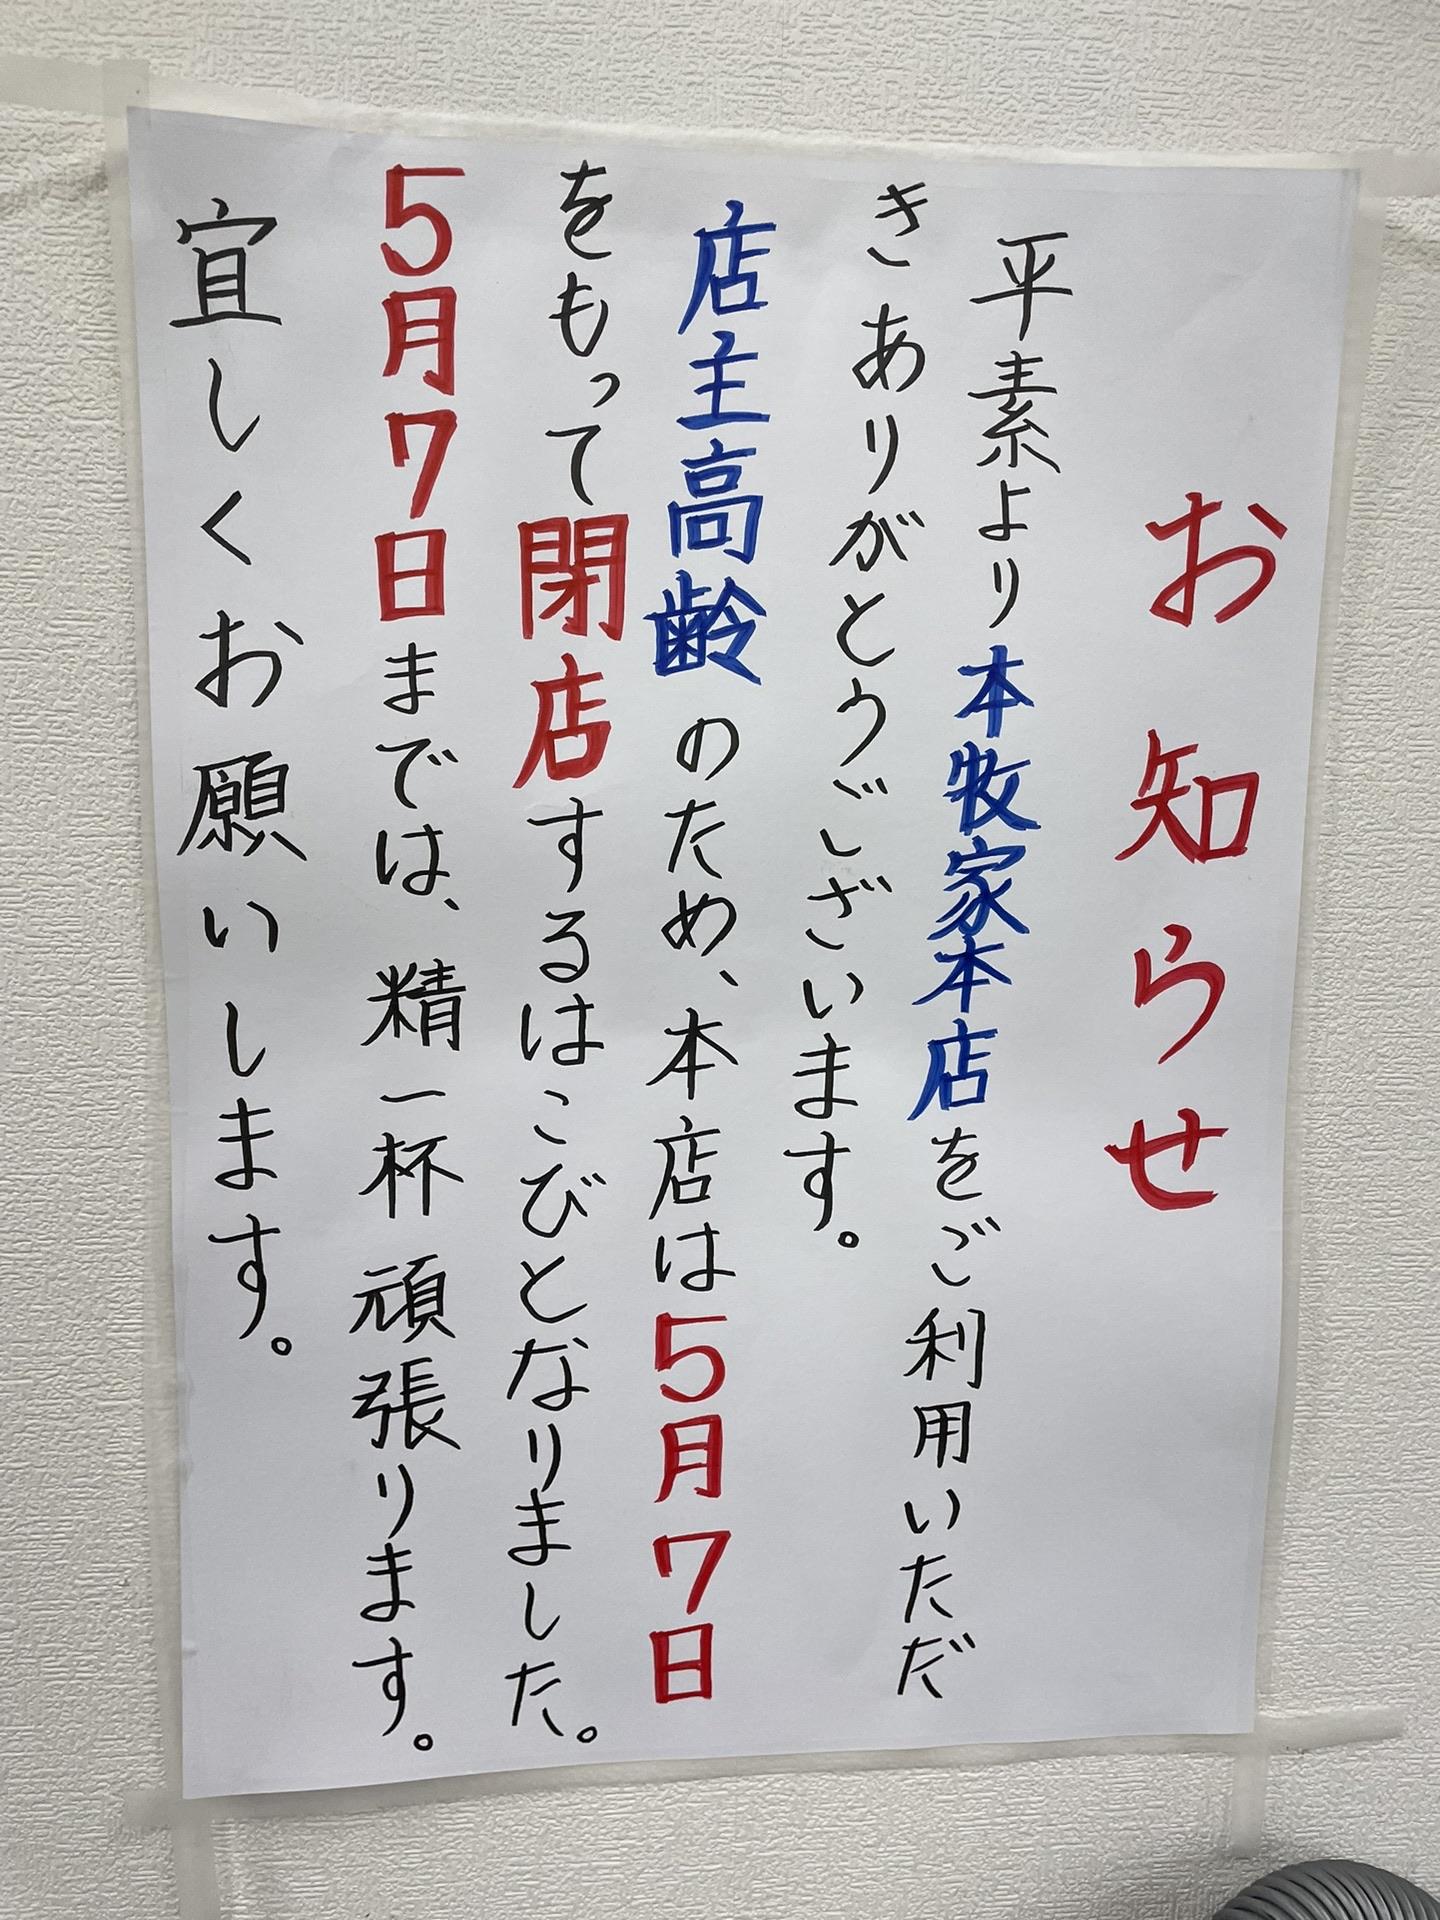 お知らせ
平素より本牧家本店をご利用いただ
きありがとうございます。
店主高齢のため、本店は5月7日
をもって閉店するはこびとなりました。
5月7日までは、精一杯頑張ります。
宜しくお願いします。